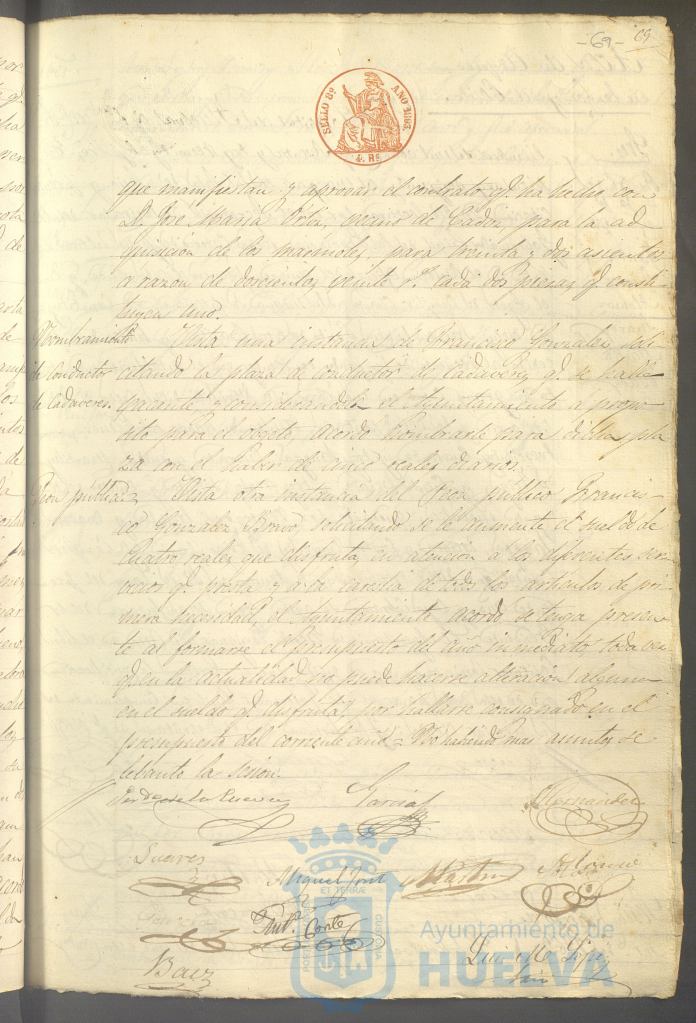 -69-
69
SELLO 8º AÑO 1863
4 Rs
que manifiestan y aprovar el contrato q.e ha hecho con
D. José Maria vecino de Cadiz, para la ad
quisicion de los marmoles, para treinta y dos asientos
a razon de doscientos veinte r.s cada dos piezas q.e consti
tuyen uno.
Nombramiento
de conductor
de Cadaveres.
Vista una instancia de Francisco Gonzalez soli
citando la plaza de conductor de Cadaveres q.e se halla
vacante y considerandole el Ayuntamiento a propo
sito para el objeto, acordó nombrarle para dicha pla
za con el haber de cinco reales diarios.
Peon publico
Vista otra instancia del Peon publico Francis
co Gonzalez Bravo, solicitando se le aumente el sueldo de
cuatro reales que disfruta, en atencion a los diferentes ser
vicios q.e presta y a la carestia de todos los articulos de pri
mera necesidad, el Ayuntamiento acordó se tenga presen
te al formarse el presupuesto del año inmediato toda vez
q.e en la actualidad no puede hacerse alteracion alguna
en el sueldo q.e disfruta, por hallarse consignado en el
presupuesto del corriente año. No habiendo mas asuntos se
lebantó la sesion.
de la Cueva
Garcia
Hernandez
Suarez
Miguel
Martin
Ant.o Conte
Baez
Luis M.
Ayuntamiento de
HUELVA